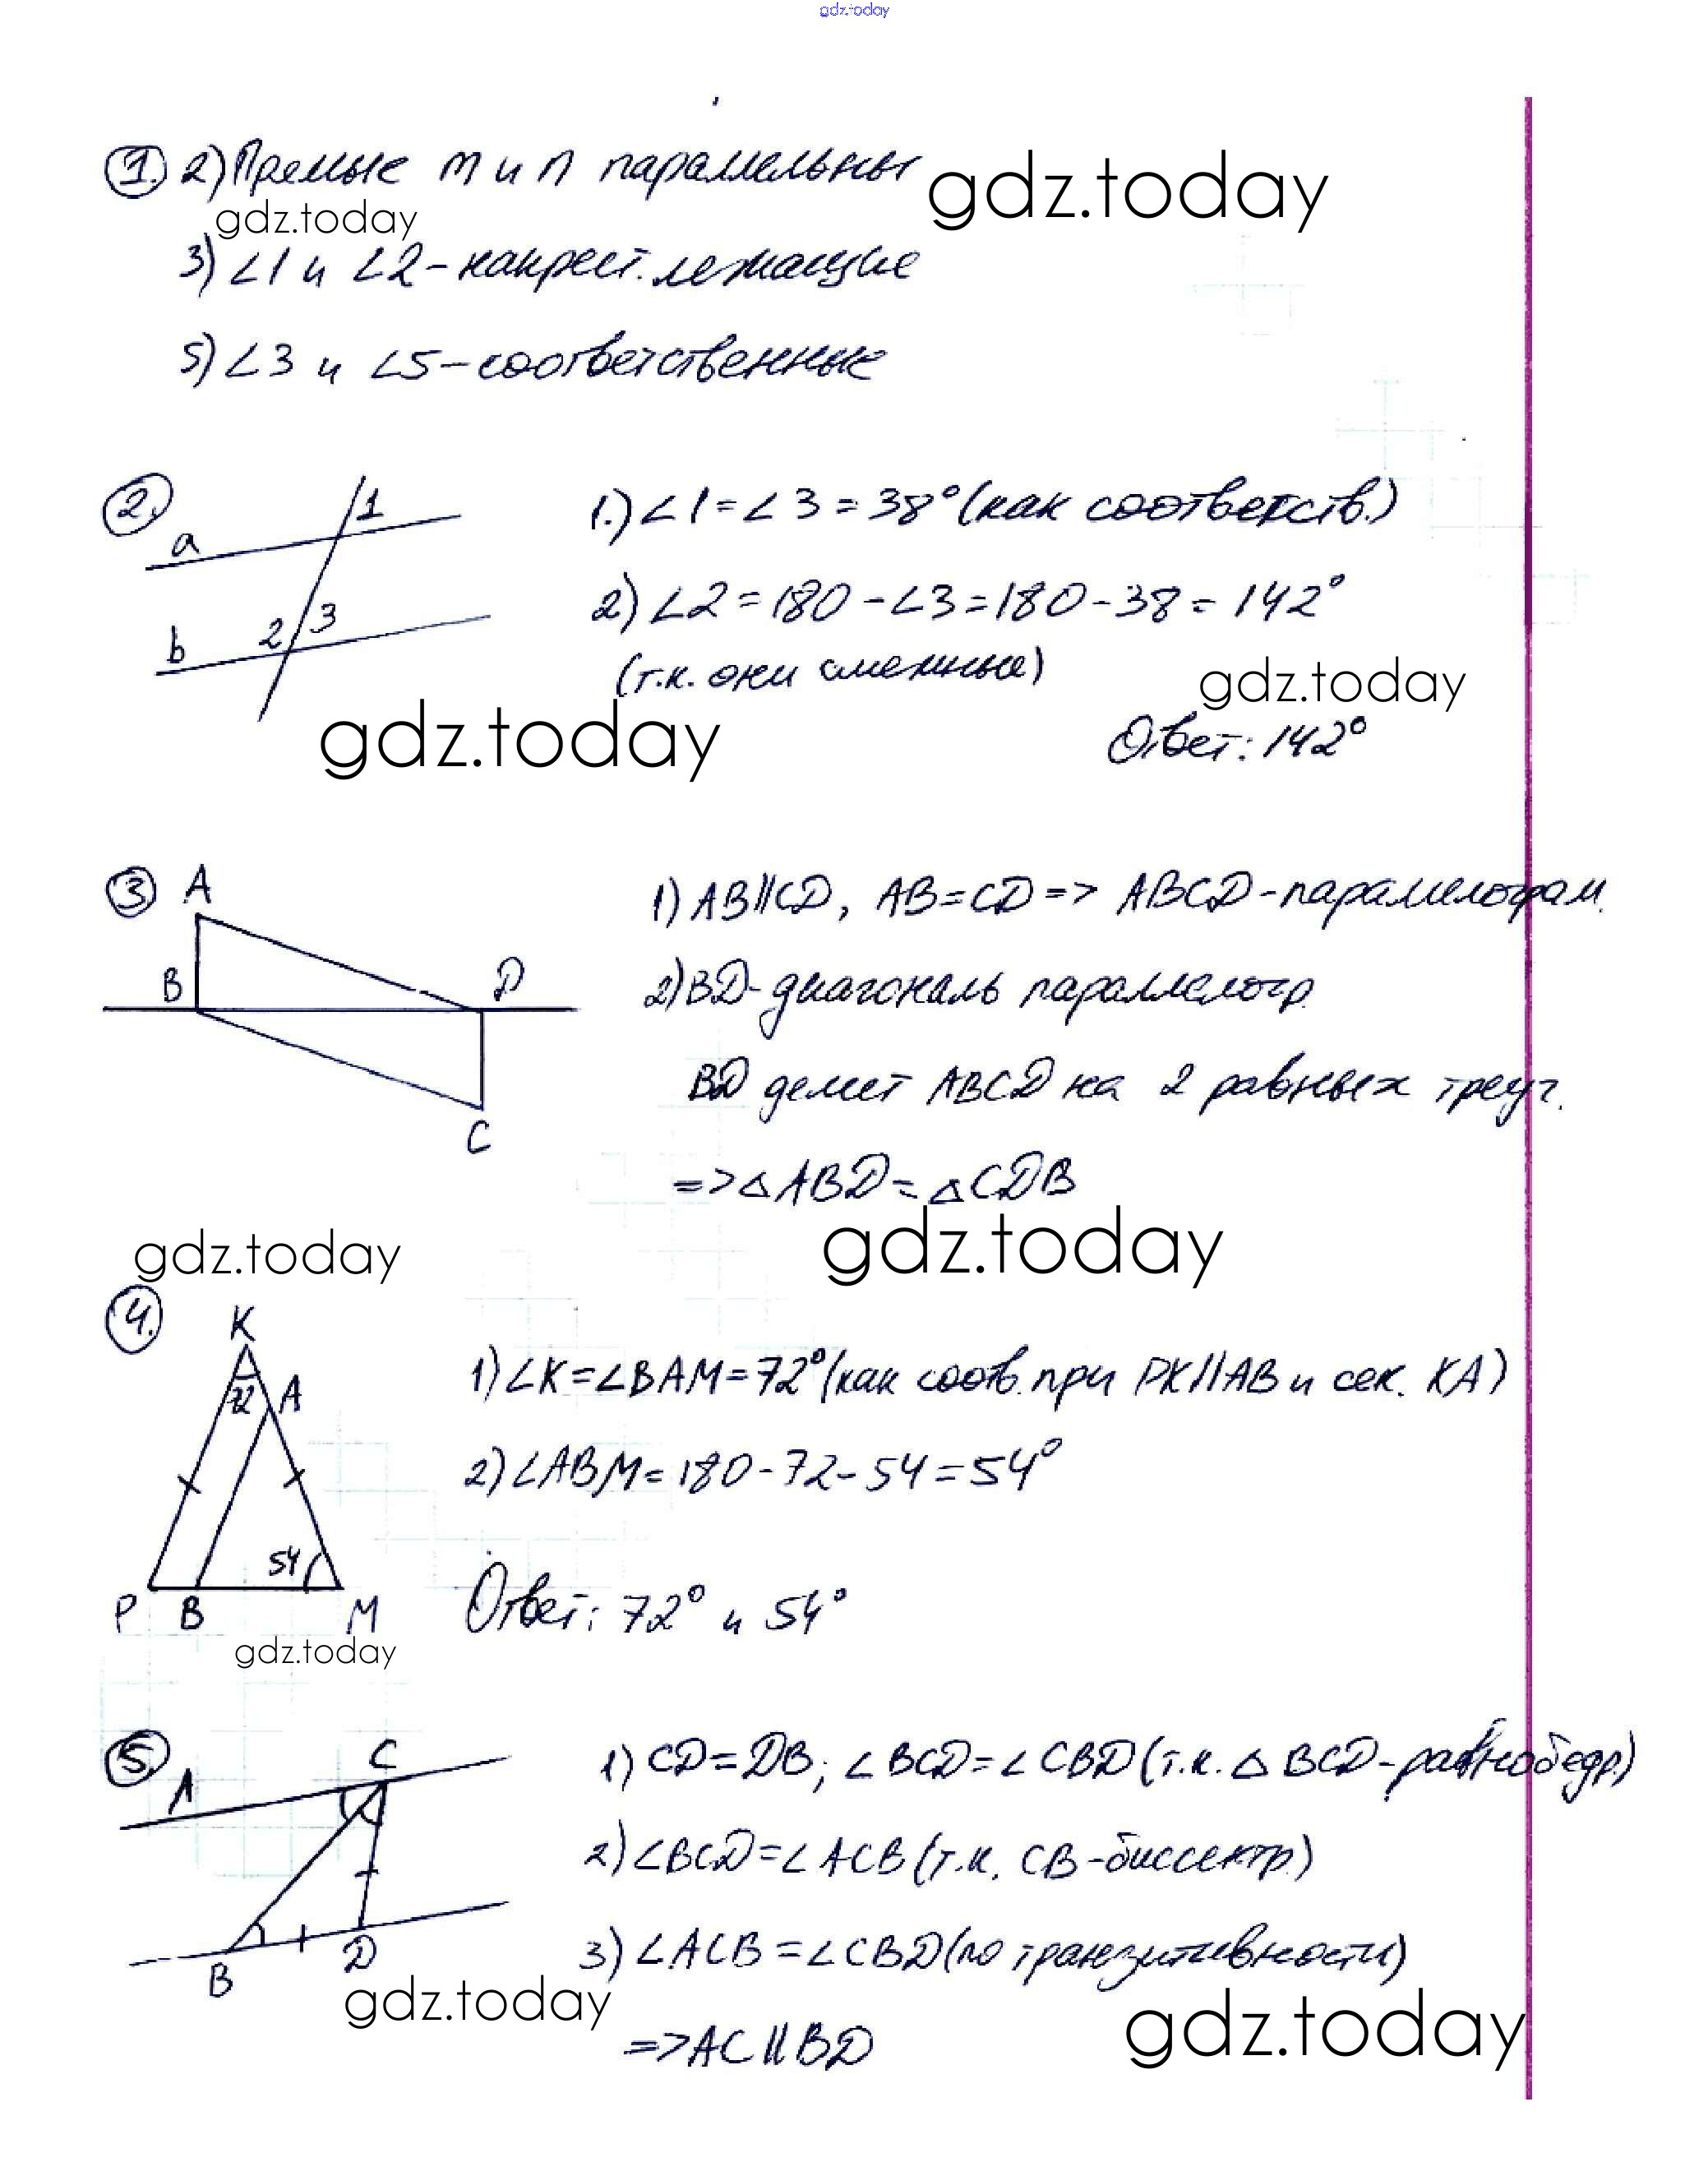 gdz.today
1. 2) Прямые m и n параллельны
gdz.today
gdz.today
3) ∠1 и ∠2 - накрест. лежащие
5) ∠3 и ∠5 - соответственные
2. a b 1 2 3
1.) ∠1 = ∠3 = 38° (как соответств.)
2) ∠2 = 180 - ∠3 = 180 - 38 = 142°
(т.к. они смежные)
gdz.today
gdz.today
Ответ: 142°
3 A B D C
1) AB||CD, AB = CD => ABCD - параллелограм.
2) BD - диагональ параллелогр.
BD делит ABCD на 2 равных треуг.
=> △ABD = △CDB
gdz.today
gdz.today
4. K 72 A 54 P B M
1) ∠K = ∠BAM = 72° (как соотв. при PK||AB и сек. KA)
2) ∠ABM = 180 - 72 - 54 = 54°
Ответ: 72° и 54°
gdz.today
5. A C B D
1) CD = DB; ∠BCD = ∠CBD (т.к. △ BCD - равнобедр.)
2) ∠BCD = ∠ACB (т.к. CB - биссектр.)
3) ∠ACB = ∠CBD (по транзитивности)
gdz.today
gdz.today
=> AC || BD